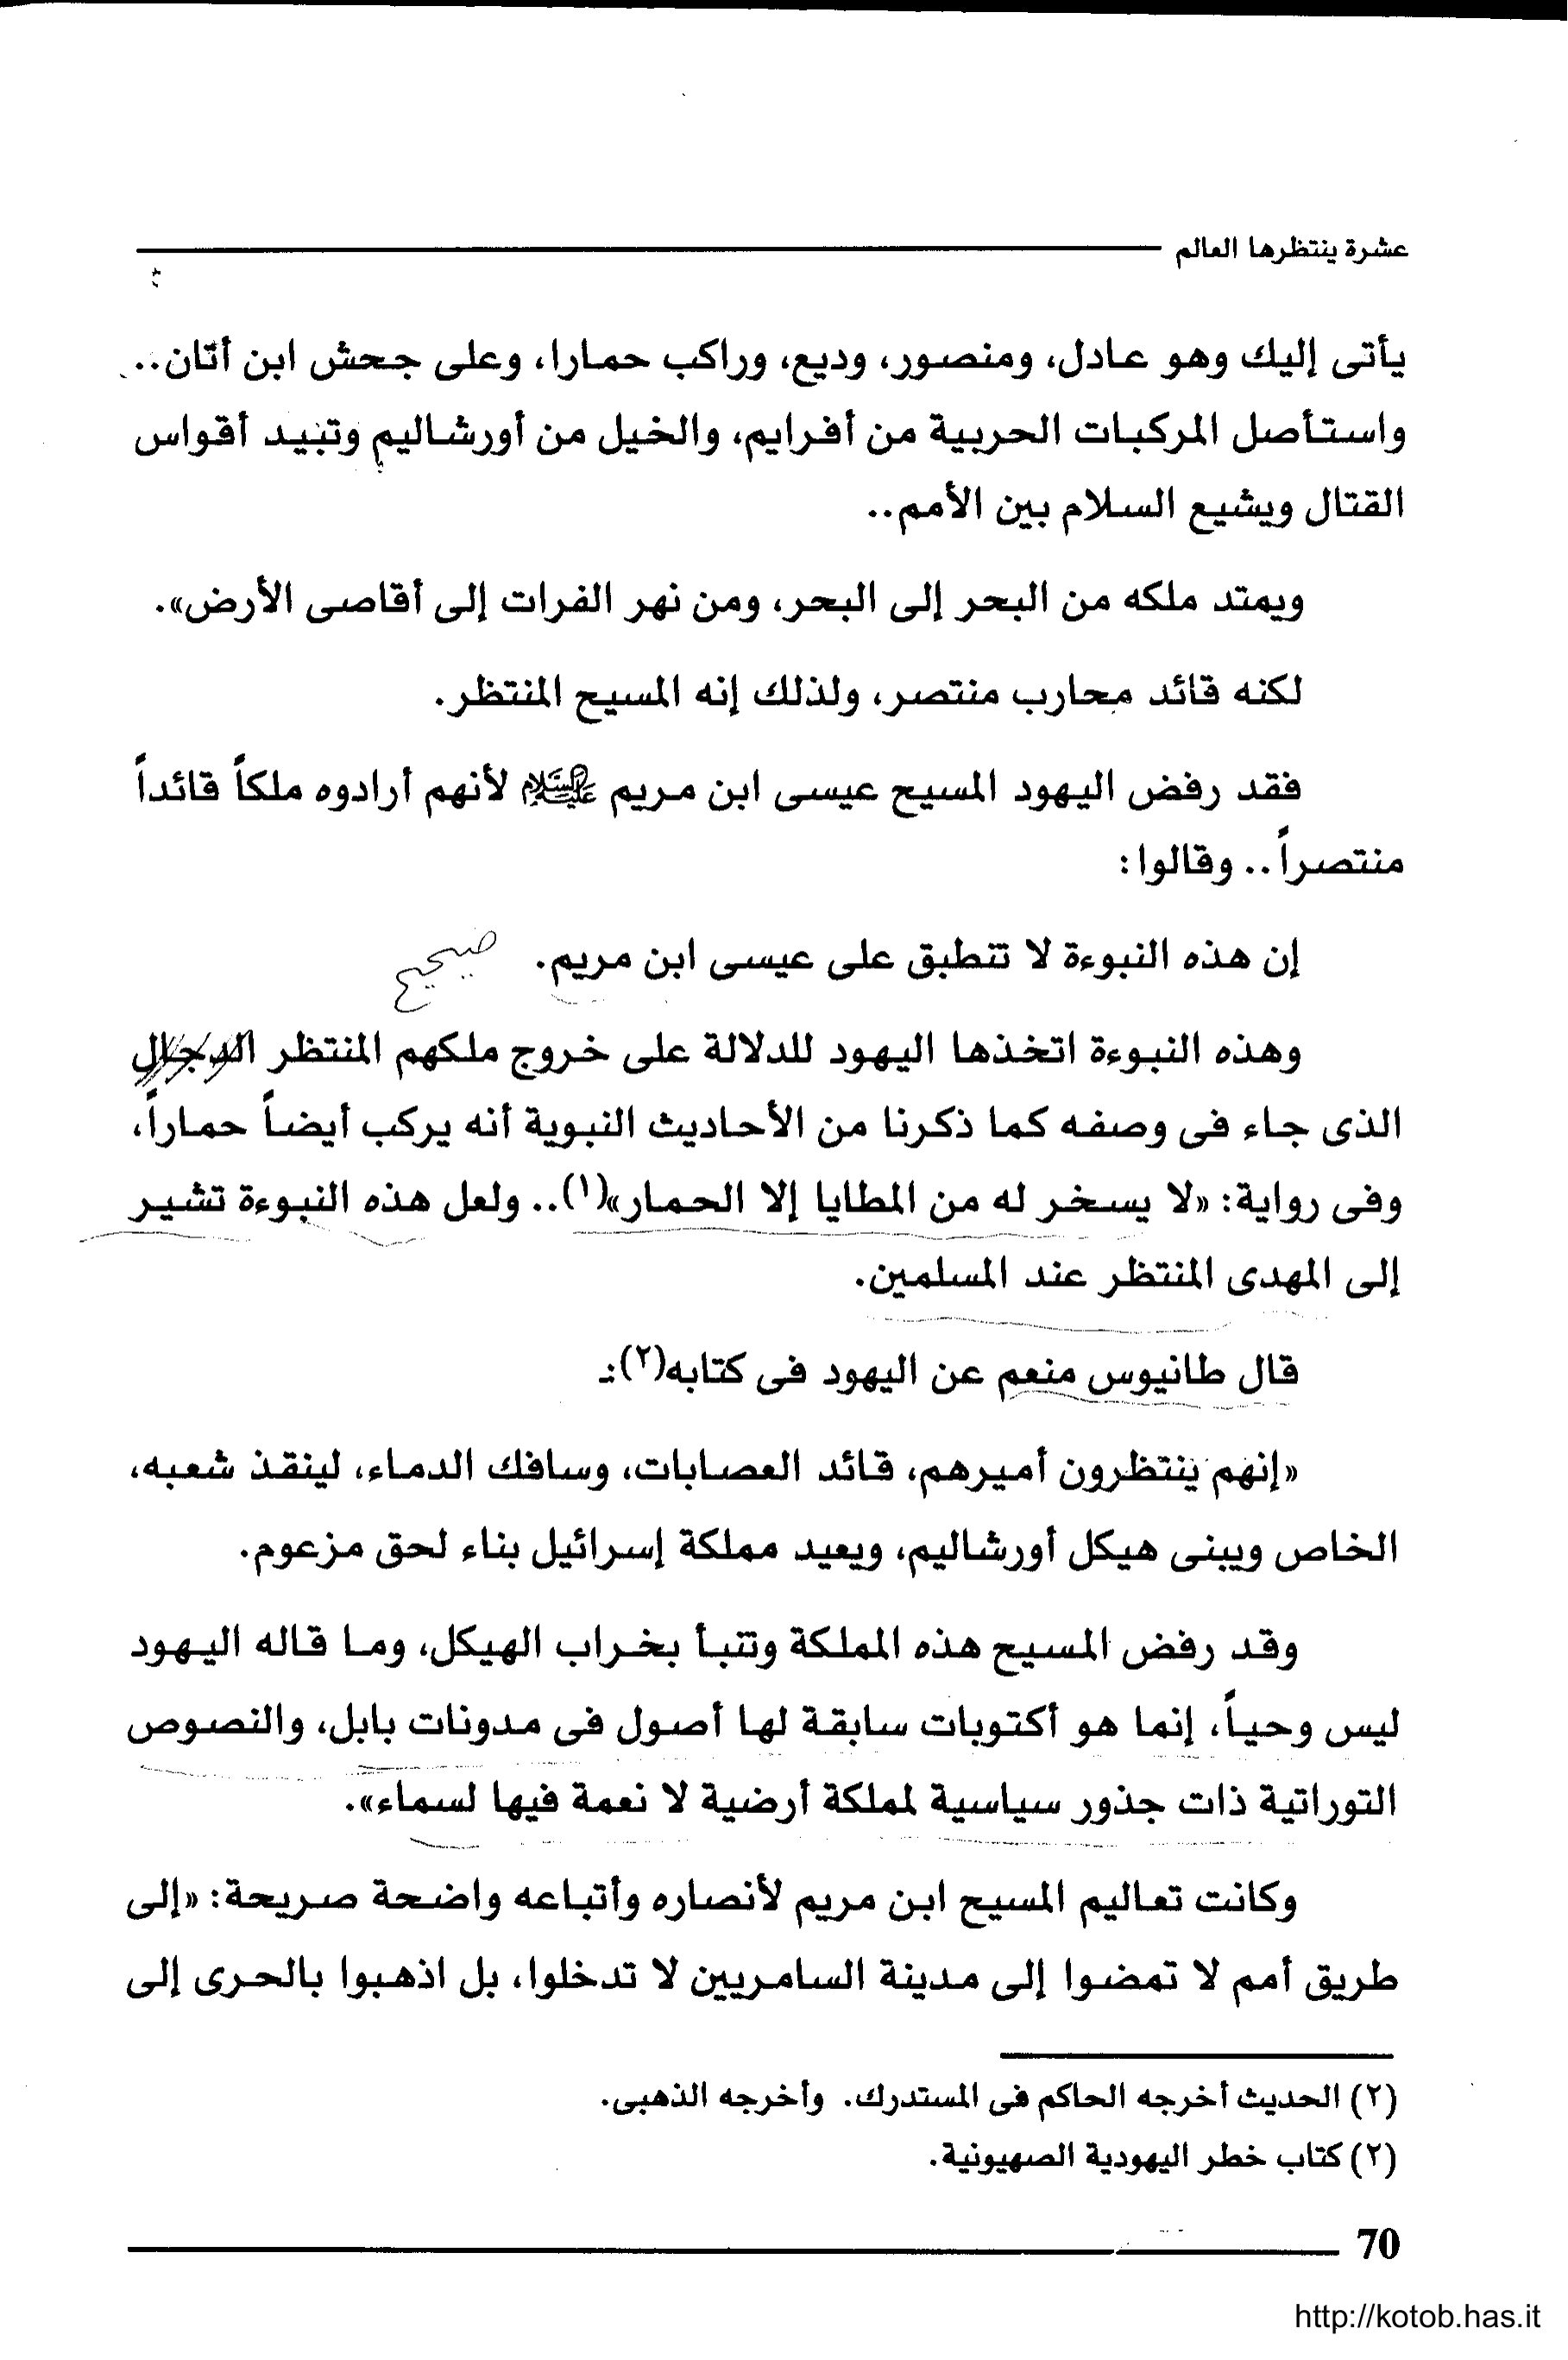 عشرة ينتظرها العالم
يأتى إليك وهو عادل، ومنصور، وديع، وراكب حمارا، وعلى جحش ابن أتان..
واستأصل المركبات الحربية من أفرايم، والخيل من أورشاليم وتبيد أقواس
القتال ويشيع السلام بين الأمم..
ويمتد ملكه من البحر إلى البحر، ومن نهر الفرات إلى أقاصى الأرض».
لكنه قائد محارب منتصر، ولذلك إنه المسيح المنتظر.
فقد رفض اليهود المسيح عيسى ابن مريم عليه السلام لأنهم أرادوه ملكاً قائداً
منتصراً.. وقالوا:
إن هذه النبوءة لا تنطبق على عيسى ابن مريم. صحيح
وهذه النبوءة اتخذها اليهود للدلالة على خروج ملكهم المنتظر الدجال
الذى جاء فى وصفه كما ذكرنا من الأحاديث النبوية أنه يركب أيضاً حماراً،
وفى رواية: «لا يسخر له من المطايا إلا الحمار»(١).. ولعل هذه النبوءة تشير
إلى المهدى المنتظر عند المسلمين.
قال طانيوس منعم عن اليهود فى كتابه(٢):ـ
«إنهم ينتظرون أميرهم، قائد العصابات، وسافك الدماء، لينقذ شعبه،
الخاص ويبنى هيكل أورشاليم، ويعيد مملكة إسرائيل بناء لحق مزعوم.
وقد رفض المسيح هذه المملكة وتنبأ بخراب الهيكل، وما قاله اليهود
ليس وحياً، إنما هو أكتوبات سابقة لها أصول فى مدونات بابل، والنصوص
التوراتية ذات جذور سياسية لمملكة أرضية لا نعمة فيها لسماء».
وكانت تعاليم المسيح ابن مريم لأنصاره وأتباعه واضحة صريحة: «إلى
طريق أمم لا تمضوا إلى مدينة السامريين لا تدخلوا، بل اذهبوا بالحرى إلى
(٢) الحديث أخرجه الحاكم فى المستدرك. وأخرجه الذهبى.
(٢) كتاب خطر اليهودية الصهيونية.
70
http://kotob.has.it